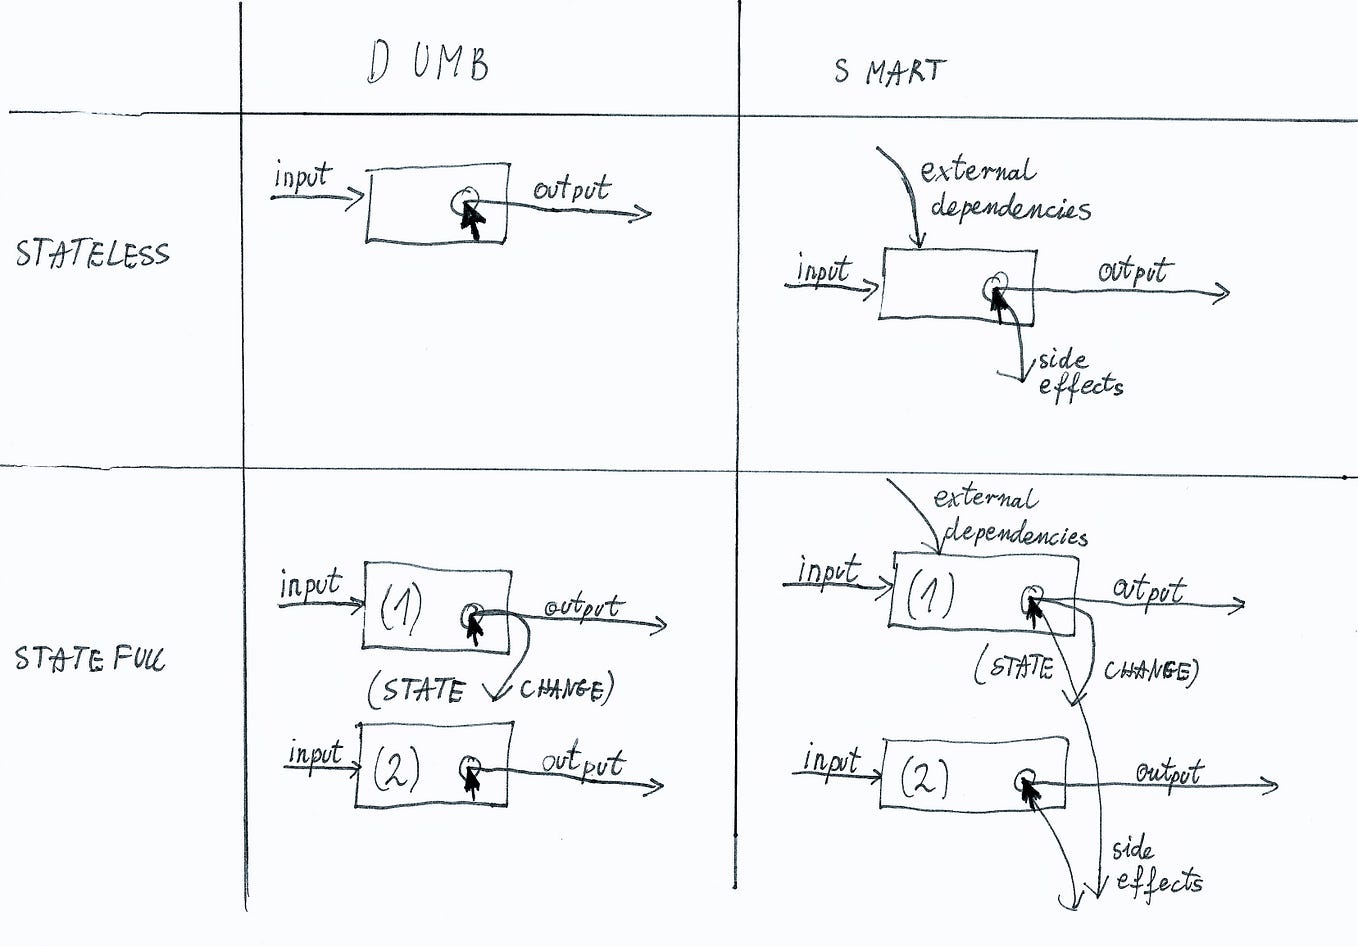 DUMB
SMART
STATELESS
input
output
external
dependencies
input
output
side
effects
STATEFULL
input
(1)
output
(STATE CHANGE)
input
(2)
output
external
dependencies
input
(1)
output
(STATE CHANGE)
input
(2)
output
side
effects